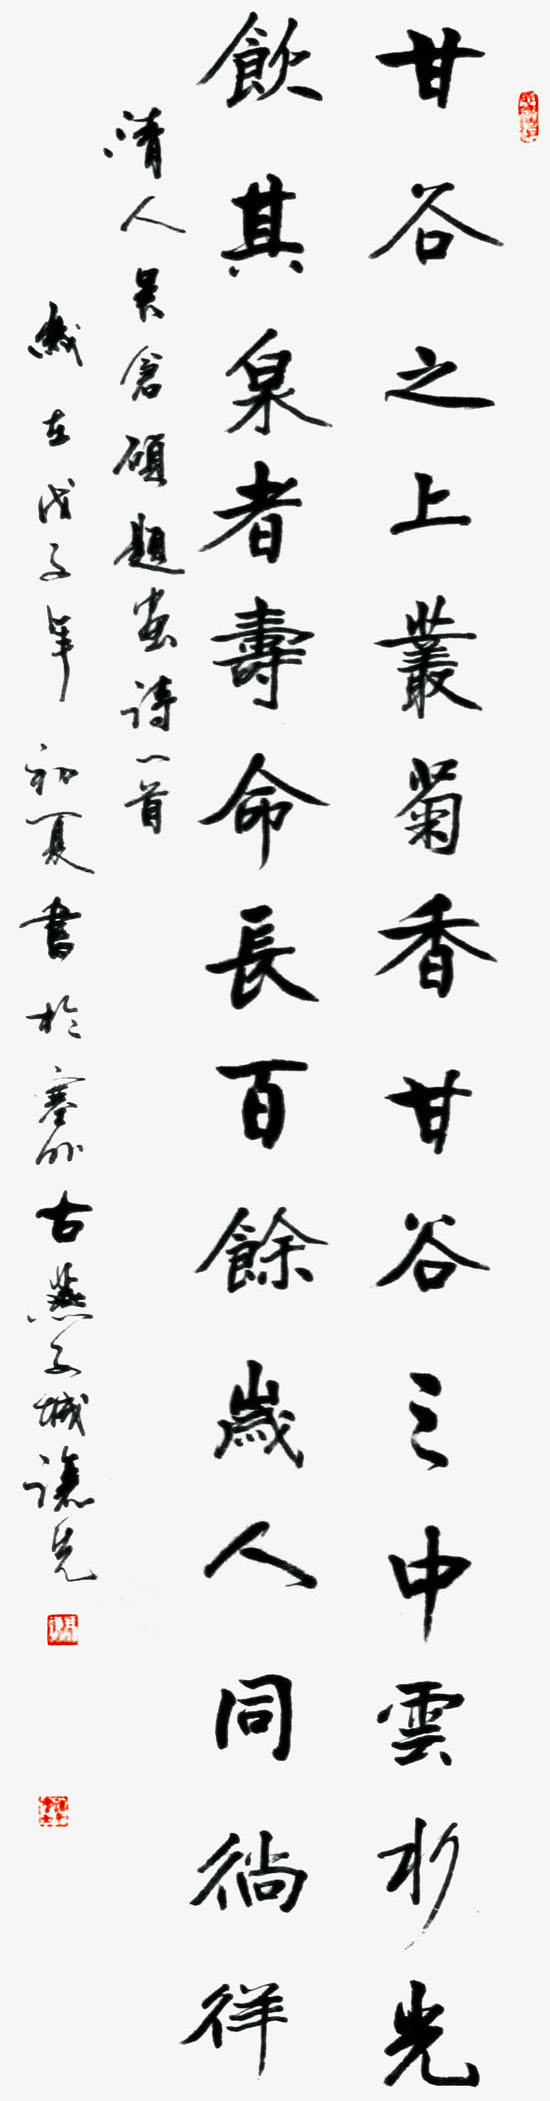 甘谷之上叢菊香甘谷之中雲水光
飲其泉者壽命長百餘歲人同徜徉
清人吴倉碩題畫诗一首
歲在戊子年初夏書於塞外古燕子城讓先